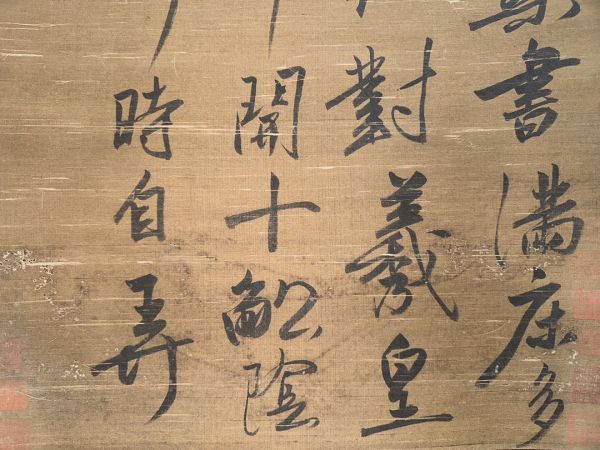 書滿床多
對羲皇
開十畝陰
時自弄